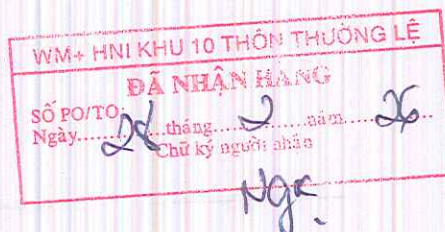 WM+ HNI KHU 10 THÔN THƯỜNG LỆ
ĐÃ NHẬN HÀNG
SỐ PO/TO:
Ngày......28...tháng......2......năm......26
Chữ ký người nhận